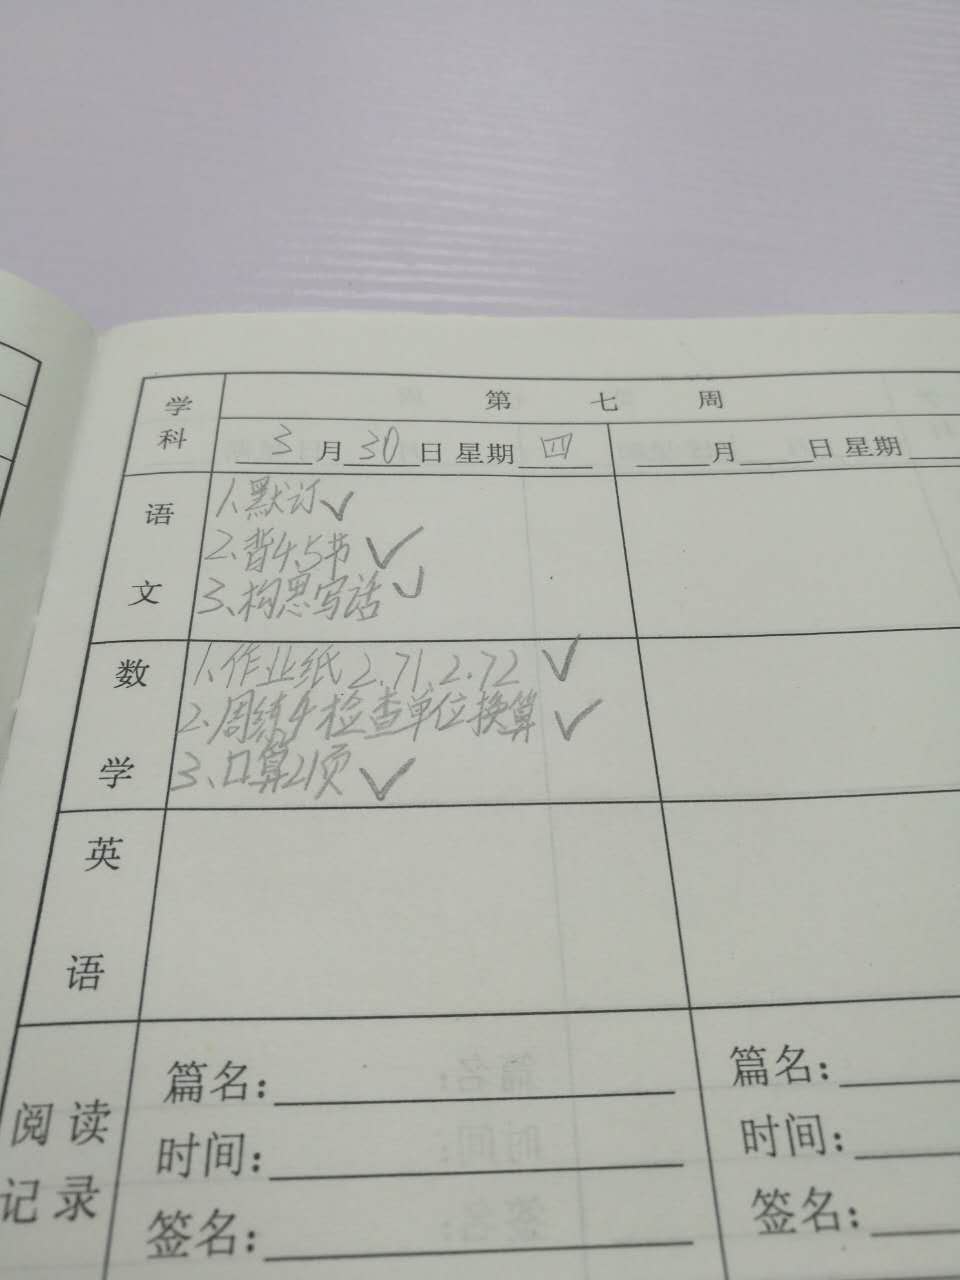 学科 第七周
3月30日 星期四 月 日 星期
语文
1.默订✓
2.背4.5节✓
3、构思写话✓
数学
1.作业纸2.71、2.72✓
2.周练4检查单位换算✓
3、口算21页✓
英语
阅读记录
篇名： 篇名：
时间： 时间：
签名： 签名：